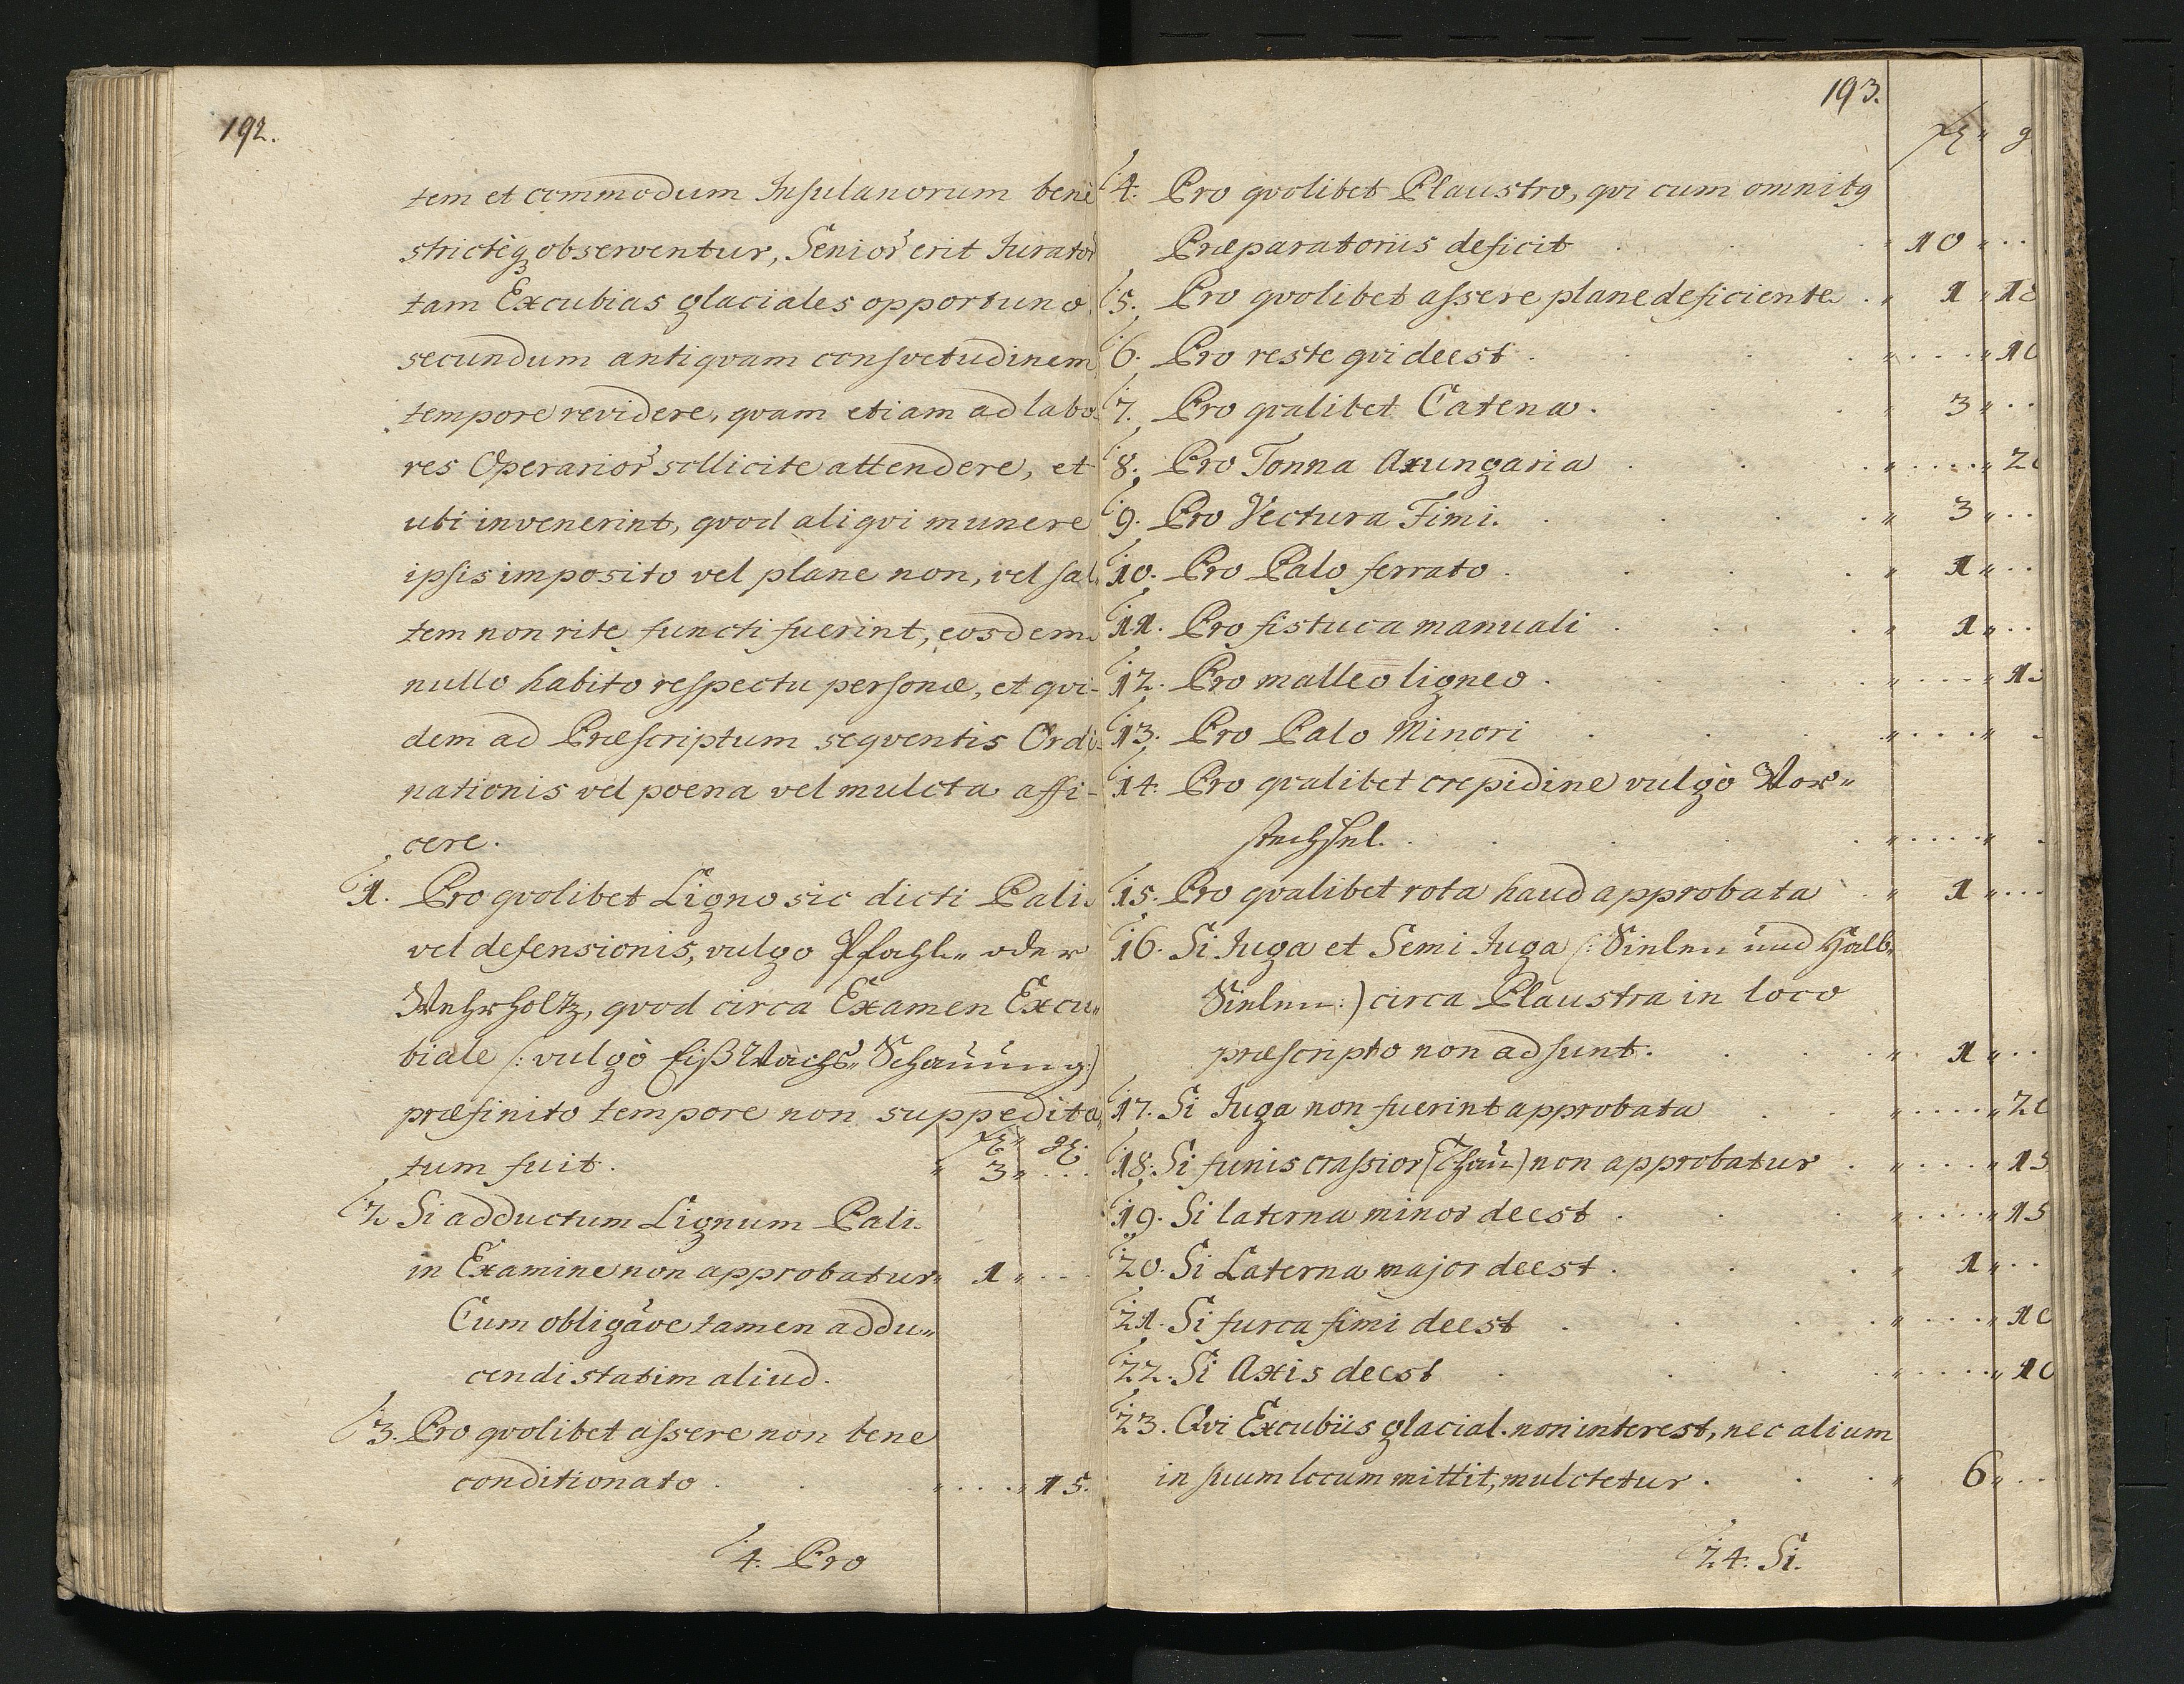 192.
tem et commodum Insulanorum benè
strictèq₃ observentur, Senior erit Jurator
tam Excubias glaciales opportuno
secundum antiqvam consvetudinem
tempore revidere, qvam etiam ad labo-
res Operarior sollicite attendere, et
ubi invenerint, qvod aliqvi munere
ipsis imposito vel plane non, vel sal-
tem non rite functi fuerint, eosdem
nullo habito respectu personæ, et qvi-
dem ad Præscriptum seqventis Ordi-
nationis vel poena vel mulcta affi-
cere.
1. Pro qvolibet Ligno sic dicti Pali
vel defensionis, vulgo Pfahl- oder
Wehrholtz, qvod circa Examen Excu-
biale (: vulgò EißWachs-Schauung:)
præfinito tempore non suppedita-
tum fuit. " 3 " ...
2. Si adductum Lignum Pali
in Examine non approbatur " 1 " ...
Cum obligàõe tamen addu-
cendi statim aliud.
3. Pro qvolibet assere non bene
conditionato . " ... " 15.
4. Pro
193.
4. Pro qvolibet Plaustro, qvi cum omnibg
Præparatoriis deficit " 10 " ..
5. Pro qvolibet assere plane deficiente . " 1 " 18
6. Pro reste qvi deest . " .... " 10
7. Pro qvalibet Catena . " 3 " ..
8. Pro Tonna Axungaria . " .... " 20
9. Pro Vectura Fimi. " 3 " ..
10. Pro Palo ferrato . " 1 " ..
11. Pro fistuca manuali . " 1 " ..
12. Pro malleo ligneo . " .... " 15
13. Pro Palo Minori " .... "
14. Pro qvalibet crepidine vulgò Vor-
. " .... "
15. Pro qvalibet rota haud approbata . " 1 " ...
16. Si Juga et Semi Juga (: Sielen und Halb-
Sielen :) circa Plaustra in loco
præscripto non adsunt . " 1 " ..
17. Si Juga non fuerint approbata " .... " 20
18. Si funis crassior (Thau) non approbatur . " .... " 15
19. Si laterna minor deest . " .... " 15
20. Si Laterna major deest . " 1 " ..
21. Si furca fimi deest . " .... " 10
22. Si Axis deest . " .... " 10
23. Qvi Excubiis glacial. non interest, nec alium
in suum locum mittit, mulctetur . " 6 " ..
24. Si.